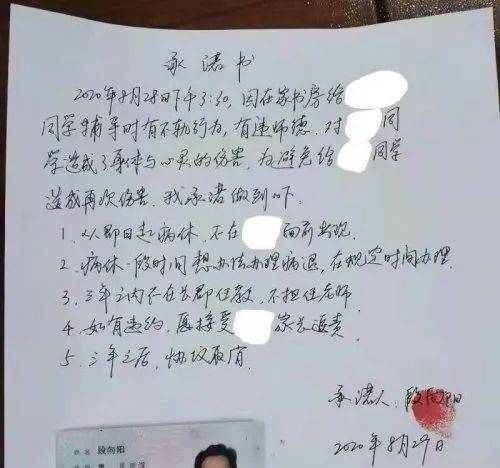 承诺书
2020年8月28日下午3:30，因在家书房给
同学辅导时有不轨行为，有违师德．对 同
学造成了身体与心灵的伤害，为避免给 同学
造成再次伤害．我承诺做到如下．
1、从即日起病休，不在 面前出现．
2．病休一段时间想办法办理病退，在规定时间办理．
3．三年之内不在长郡任教，不担任老师．
4、如有违约，愿接受 家长追责．
5．三年之后，协议取消．
承诺人：段向阳
2020年8月29日
姓名 段向阳